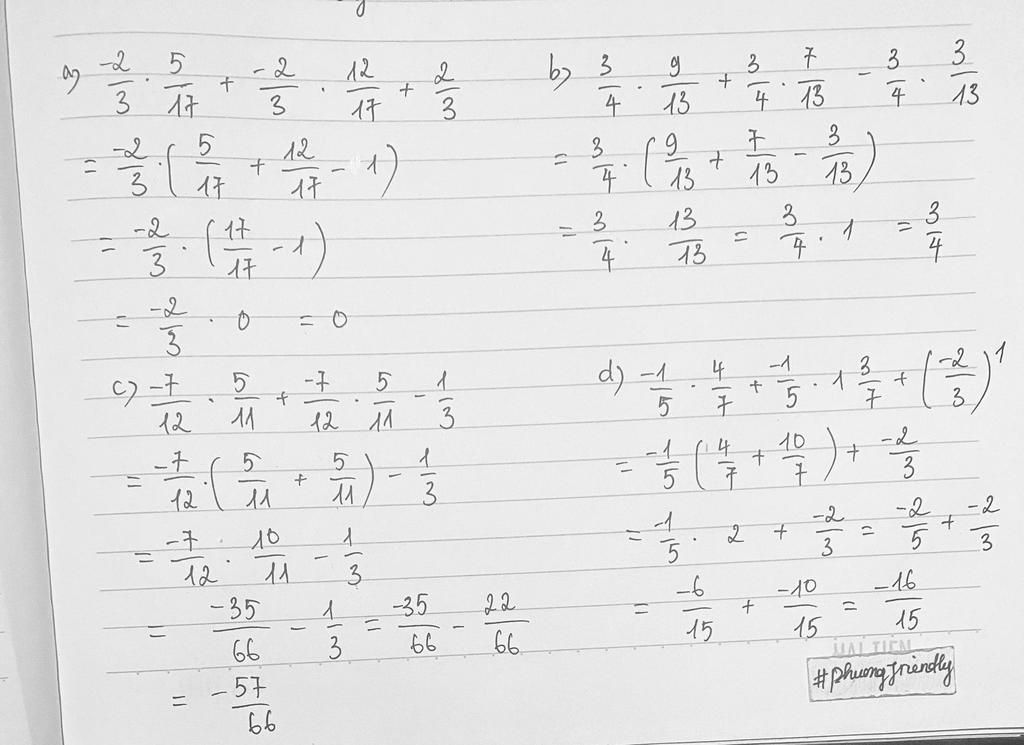 a) -2/3 . 5/17 + -2/3 . 12/17 + 2/3
= -2/3 . (5/17 + 12/17 - 1)
= -2/3 . (17/17 - 1)
= -2/3 . 0 = 0
b) 3/4 . 9/13 + 3/4 . 7/13 - 3/4 . 3/13
= 3/4 . (9/13 + 7/13 - 3/13)
= 3/4 . 13/13 = 3/4 . 1 = 3/4
c) -7/12 . 5/11 + -7/12 . 5/11 - 1/3
= -7/12 . (5/11 + 5/11) - 1/3
= -7/12 . 10/11 - 1/3
= -35/66 - 1/3 = -35/66 - 22/66
= -57/66
d) -1/5 . 4/7 + -1/5 . 1 3/7 + (-2/3)^1
= -1/5 (4/7 + 10/7) + -2/3
= -1/5 . 2 + -2/3 = -2/5 + -2/3
= -6/15 + -10/15 = -16/15
#phuongfriendly